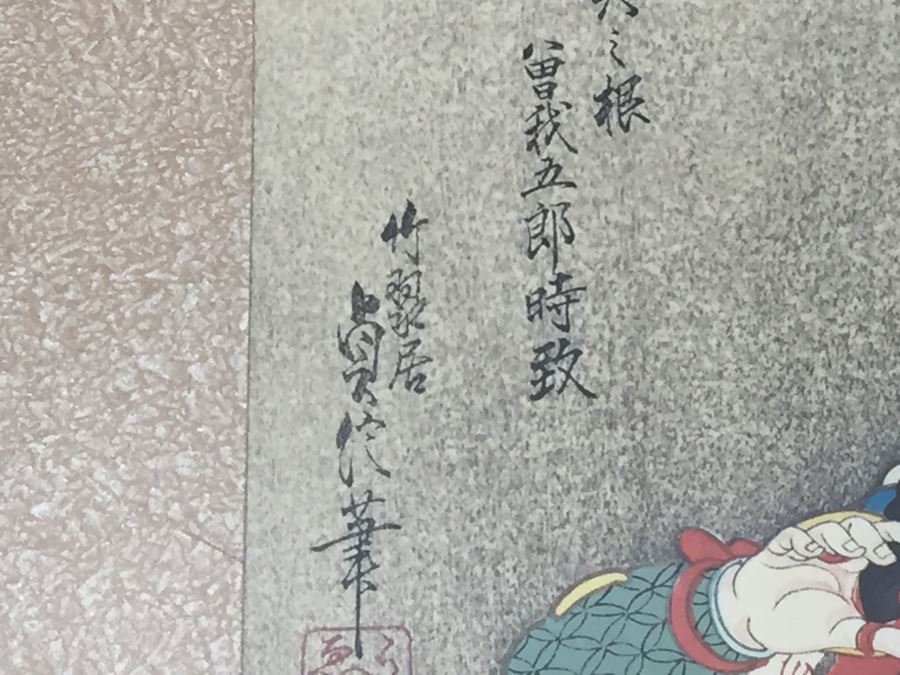 之根
曽我五郎時致
竹翠居
貞信筆